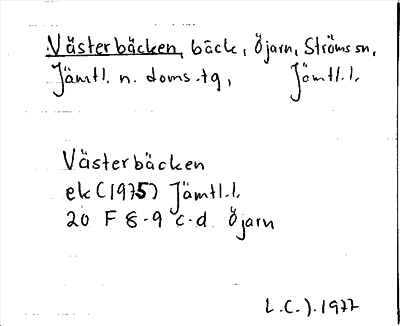 Västerbäcken, bäck, Öjarn, Ströms sn,
Jämtl. n. doms.tg, Jämtl.l.
Västerbäcken
ek (1975) Jämtl.l.
20 F 8-9 c-d Öjarn
L.C.J. 1977